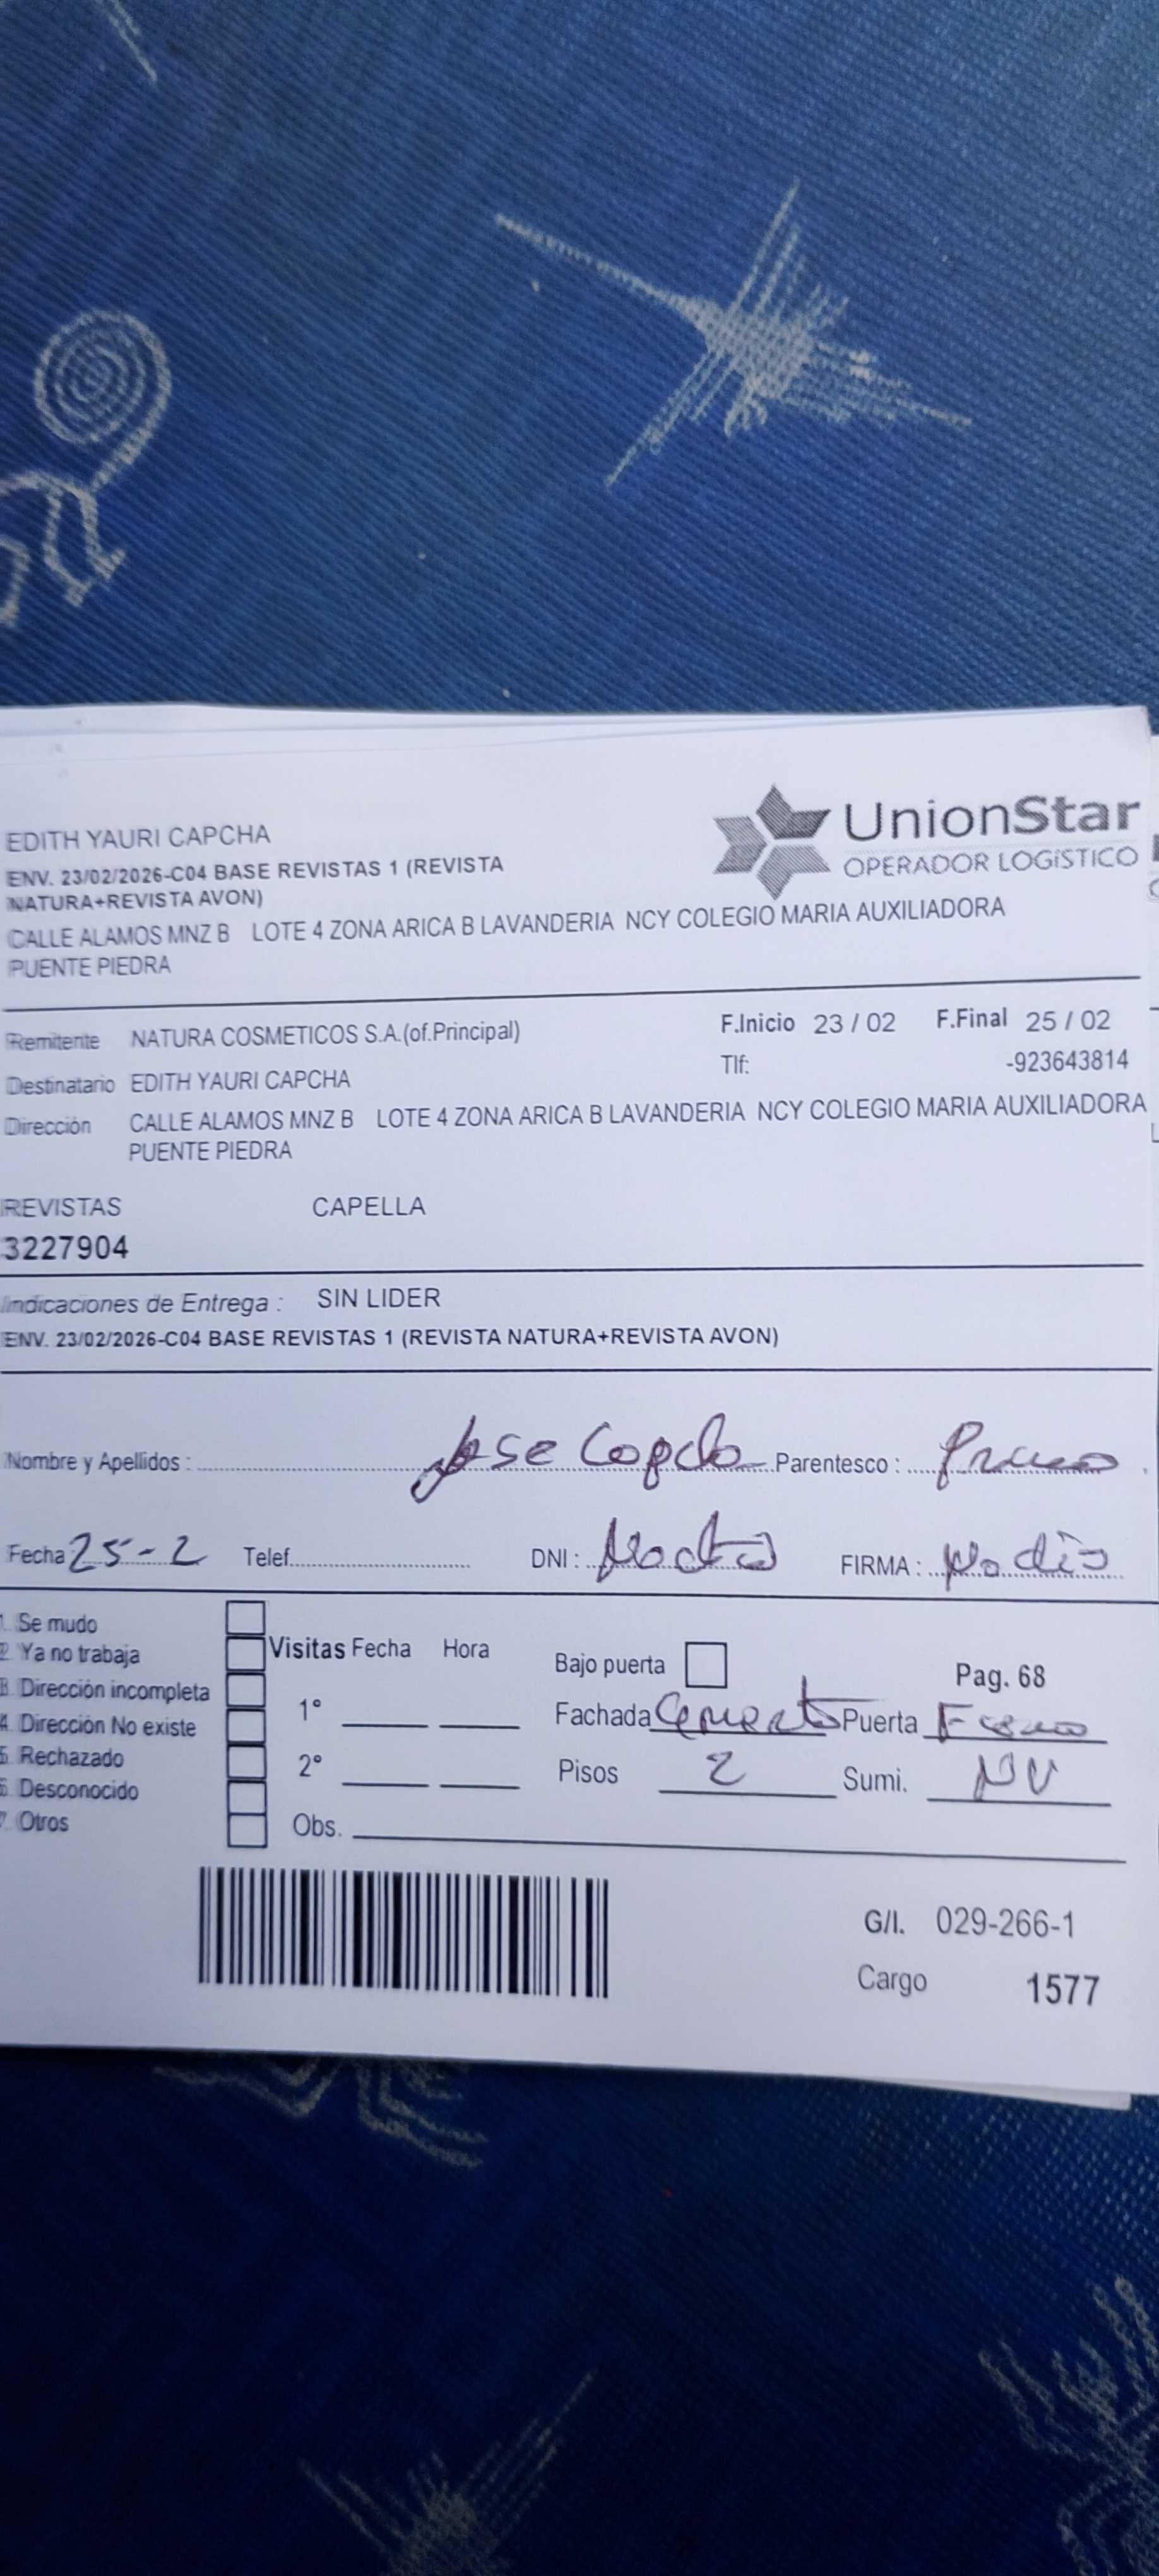 EDITH YAURI CAPCHA
ENV. 23/02/2026-C04 BASE REVISTAS 1 (REVISTA
NATURA+REVISTA AVON)
UnionStar
OPERADOR LOGÍSTICO
CALLE ALAMOS MNZ B LOTE 4 ZONA ARICA B LAVANDERIA NCY COLEGIO MARIA AUXILIADORA
PUENTE PIEDRA
Remitente NATURA COSMETICOS S.A.(of.Principal) F.Inicio 23 / 02 F.Final 25 / 02
Tlf: -923643814
Destinatario EDITH YAURI CAPCHA
Dirección CALLE ALAMOS MNZ B LOTE 4 ZONA ARICA B LAVANDERIA NCY COLEGIO MARIA AUXILIADORA
PUENTE PIEDRA
REVISTAS CAPELLA
3227904
Indicaciones de Entrega : SIN LIDER
ENV. 23/02/2026-C04 BASE REVISTAS 1 (REVISTA NATURA+REVISTA AVON)
Nombre y Apellidos : Jose Parentesco :
Fecha 25-2 Telef. DNI : FIRMA :
1. Se mudo
2. Ya no trabaja
3. Dirección incompleta
4. Dirección No existe
5. Rechazado
6. Desconocido
7. Otros
Visitas Fecha Hora
1°
2°
Obs.
Bajo puerta Pag. 68
Fachada Cemento Puerta Fierro
Pisos 2 Sumi. NV
G/I. 029-266-1
Cargo 1577